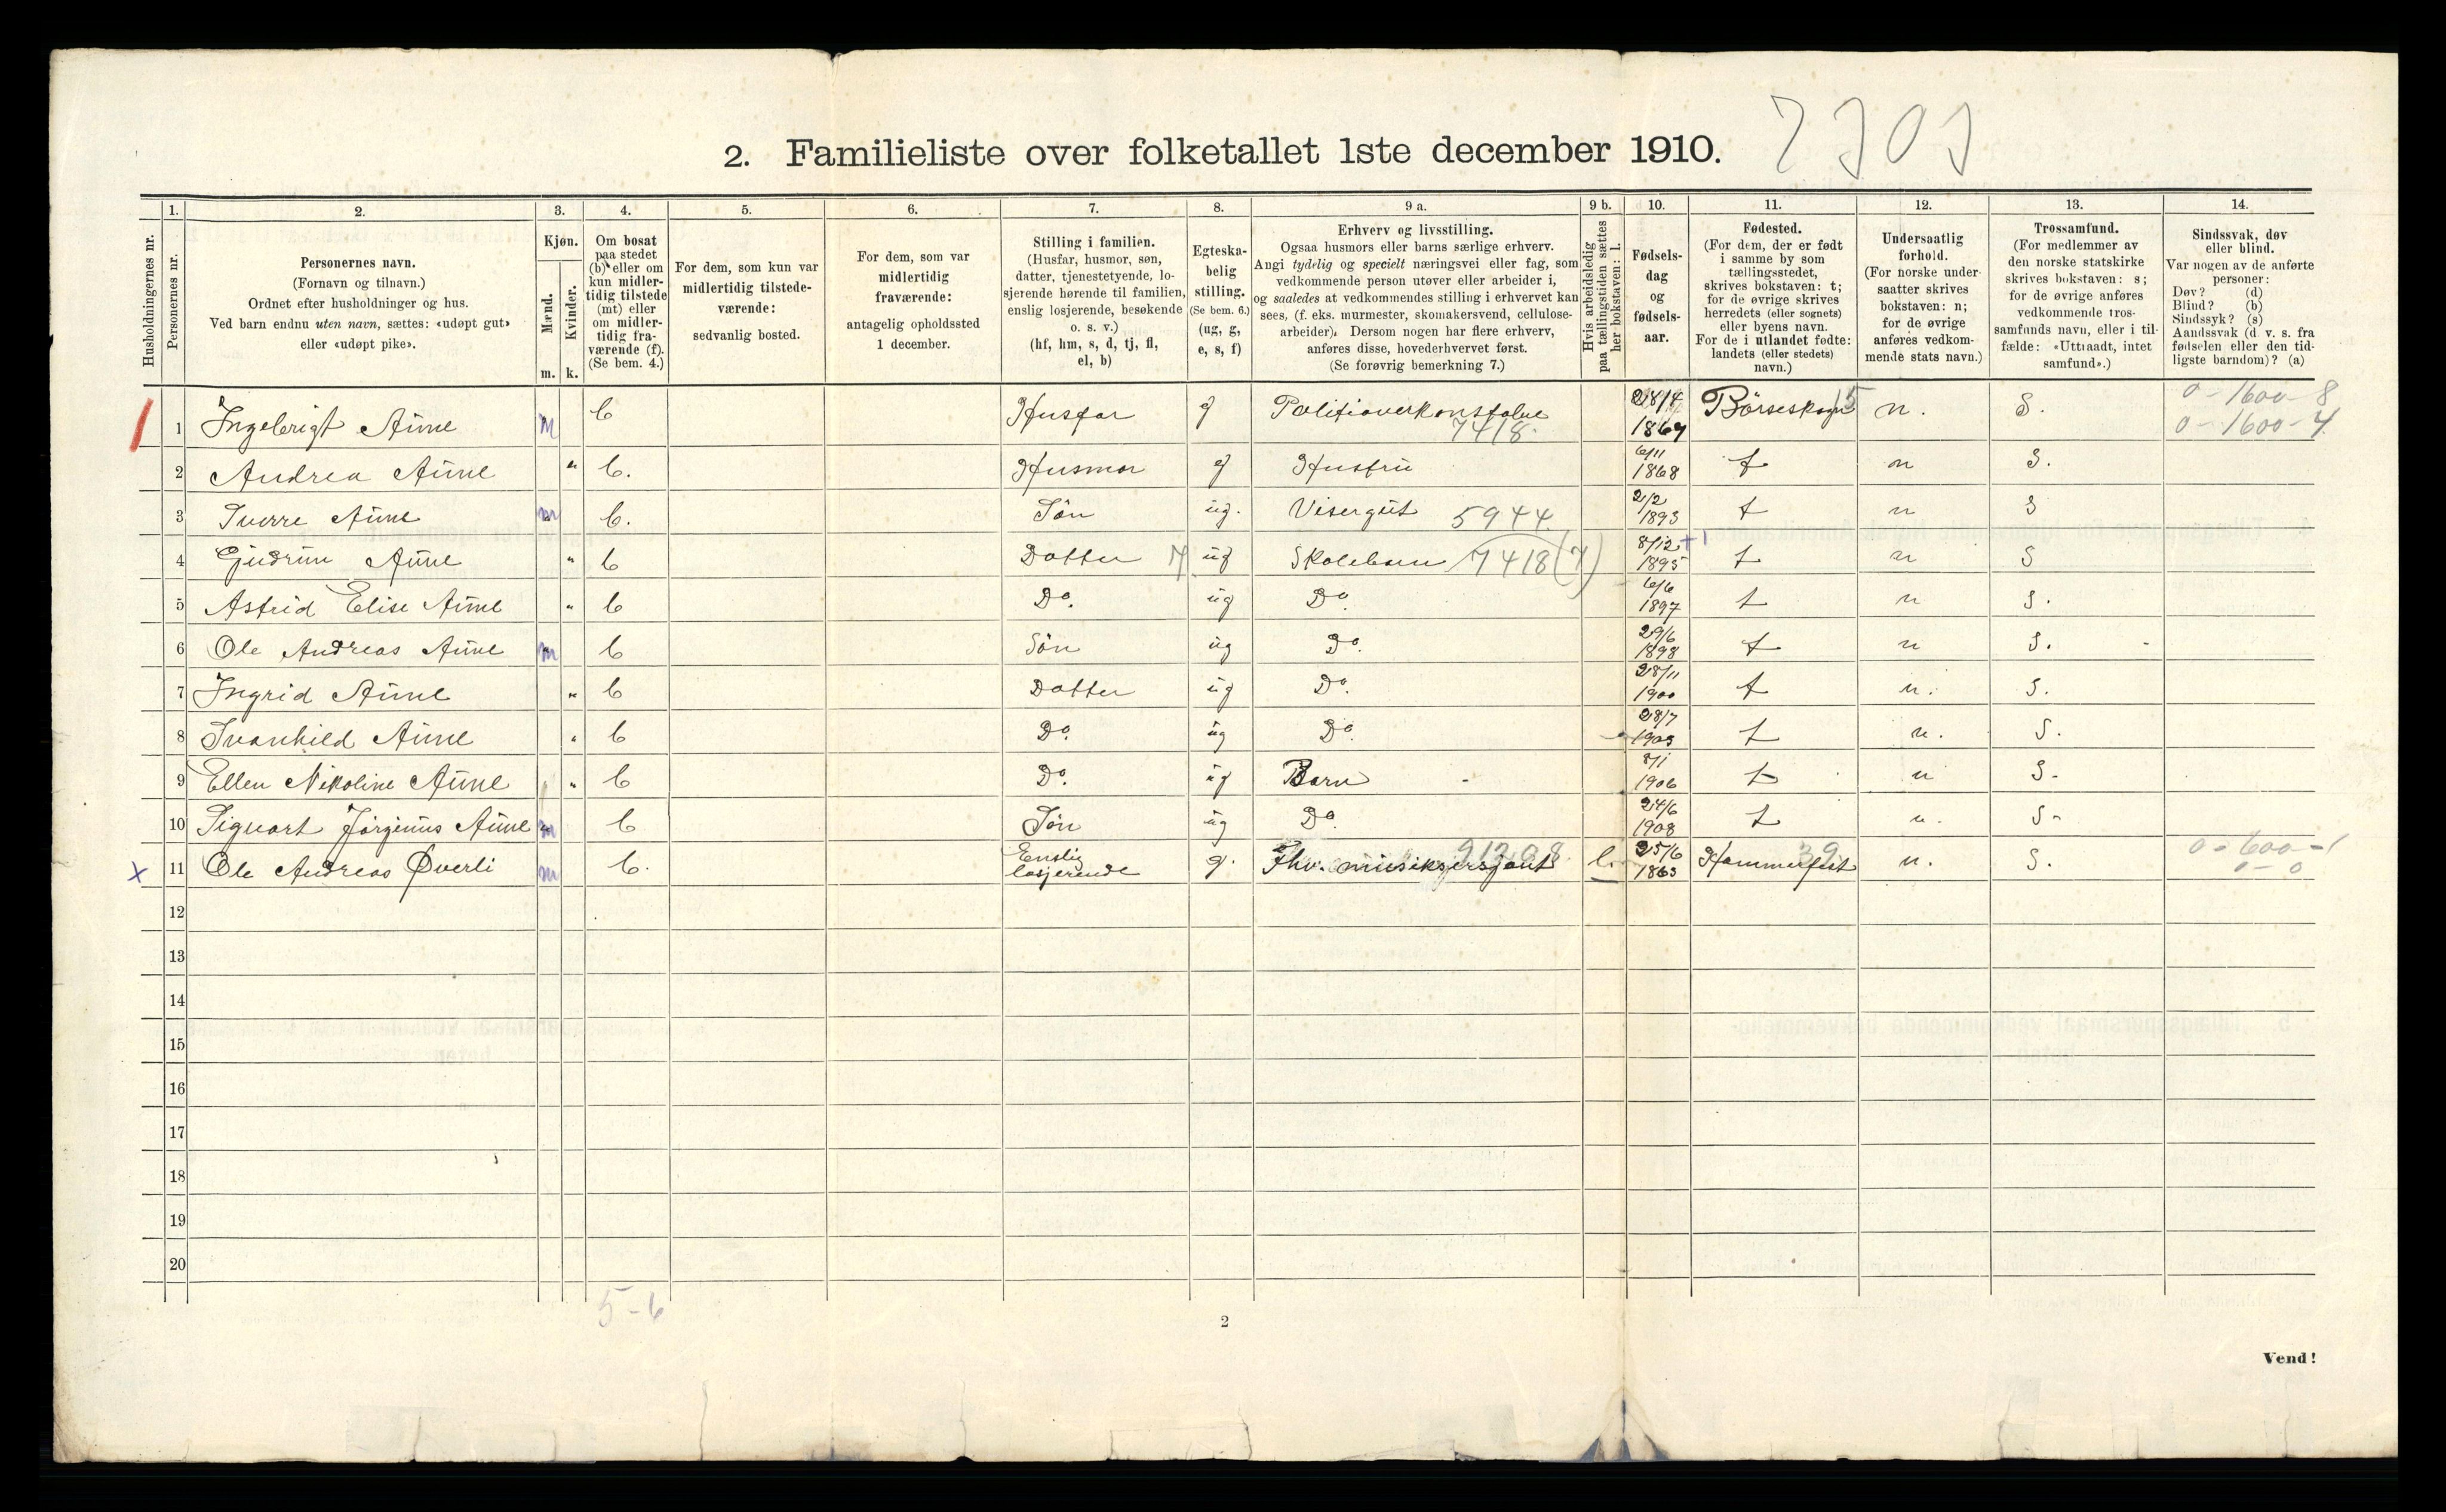 2. Familieliste over folketallet 1ste december 1910.
Husholdningernes nr.
1.
Personernes nr.
2.
Personernes navn.
(Fornavn og tilnavn.)
Ordnet efter husholdninger og hus.
Ved barn endnu uten navn, sættes: «udøpt gut»
eller «udøpt pike».
3.
Kjøn.
Mænd.
Kvinder.
m. k.
4.
Om bosat
paa stedet
(b) eller om
kun midler-
tidig tilstede
(mt) eller
om midler-
tidig fra-
værende (f).
(Se bem. 4.)
5.
For dem, som kun var
midlertidig tilstede-
værende:
sedvanlig bosted.
6.
For dem, som var
midlertidig
fraværende:
antagelig opholdssted
1 december.
7.
Stilling i familien.
(Husfar, husmor, søn,
datter, tjenestetyende, lo-
sjerende hørende til familien,
enslig losjerende, besøkende
o. s. v.)
(hf, hm, s, d, tj, fl,
el, b)
8.
Egteska-
belig
stilling.
(Se bem. 6.)
(ug, g,
e, s, f)
9 a.
Erhverv og livsstilling.
Ogsaa husmors eller barns særlige erhverv.
Angi tydelig og specielt næringsvei eller fag, som
vedkommende person utøver eller arbeider i,
og saaledes at vedkommendes stilling i erhvervet kan
sees, (f. eks. murmester, skomakersvend, cellulose-
arbeider). Dersom nogen har flere erhverv,
anføres disse, hovederhvervet først.
(Se forøvrig bemerkning 7.)
9 b.
Hvis arbeidsledig
paa tællingstiden sættes
her bokstaven: l.
10.
Fødsels-
dag
og
fødsels-
aar.
11.
Fødested.
(For dem, der er født
i samme by som
tællingsstedet,
skrives bokstaven: t;
for de øvrige skrives
herredets (eller sognets)
eller byens navn.
For de i utlandet fødte:
landets (eller stedets)
navn.)
12.
Undersaatlig
forhold.
(For norske under-
saatter skrives
bokstaven: n;
for de øvrige
anføres vedkom-
mende stats navn.)
13.
Trossamfund.
(For medlemmer av
den norske statskirke
skrives bokstaven: s;
for de øvrige anføres
vedkommende tros-
samfunds navn, eller i til-
fælde: «Uttraadt, intet
samfund».)
14.
Sindssvak, døv
eller blind.
Var nogen av de anførte
personer:
Døv? (d)
Blind? (b)
Sindssyk? (s)
Aandssvak (d. v. s. fra
fødselen eller den tid-
ligste barndom)? (a)
1 Ingebrigt Aune m b Husfar g Politioverkonstabel 7418. 28/4 1867 Börseskogn 15 n. S. 0-1600-8 0-1600-4
2 Andrea Aune " b. Husmor g Husfru 6/11 1868 t n S.
3 Sverre Aune m b. Søn ug. Visergut 5944 2/2 1893 t n S
4 Gudrun Aune " b Datter ug Skolebarn 7418(7) 8/12 1895 t n S
5 Astrid Elise Aune " b Do. ug Do. 6/6 1897 t n S.
6 Ole Andreas Aune m b Søn ug Do. 29/6 1898 t n S.
7 Ingrid Aune " b Datter ug Do. 28/11 1900 t n. S.
8 Svanhild Aune " b Do. ug Do. 28/7 1903 t n. S.
9 Ellen Nikoline Aune " b Do. ug Barn 8/1 1906 t n S.
10 Siguart Jörginus Aune m b Søn ug Do. 24/6 1908 t n. S.
x 11 Ole Andreas Øverli m b. Enslig losjerende g. Fhv. musiksersjant l. 25/6 1863 Hammerfest n. S. 0-600-1 0-0
12
13
14
15
16
17
18
19
20
5-6
2
Vend!